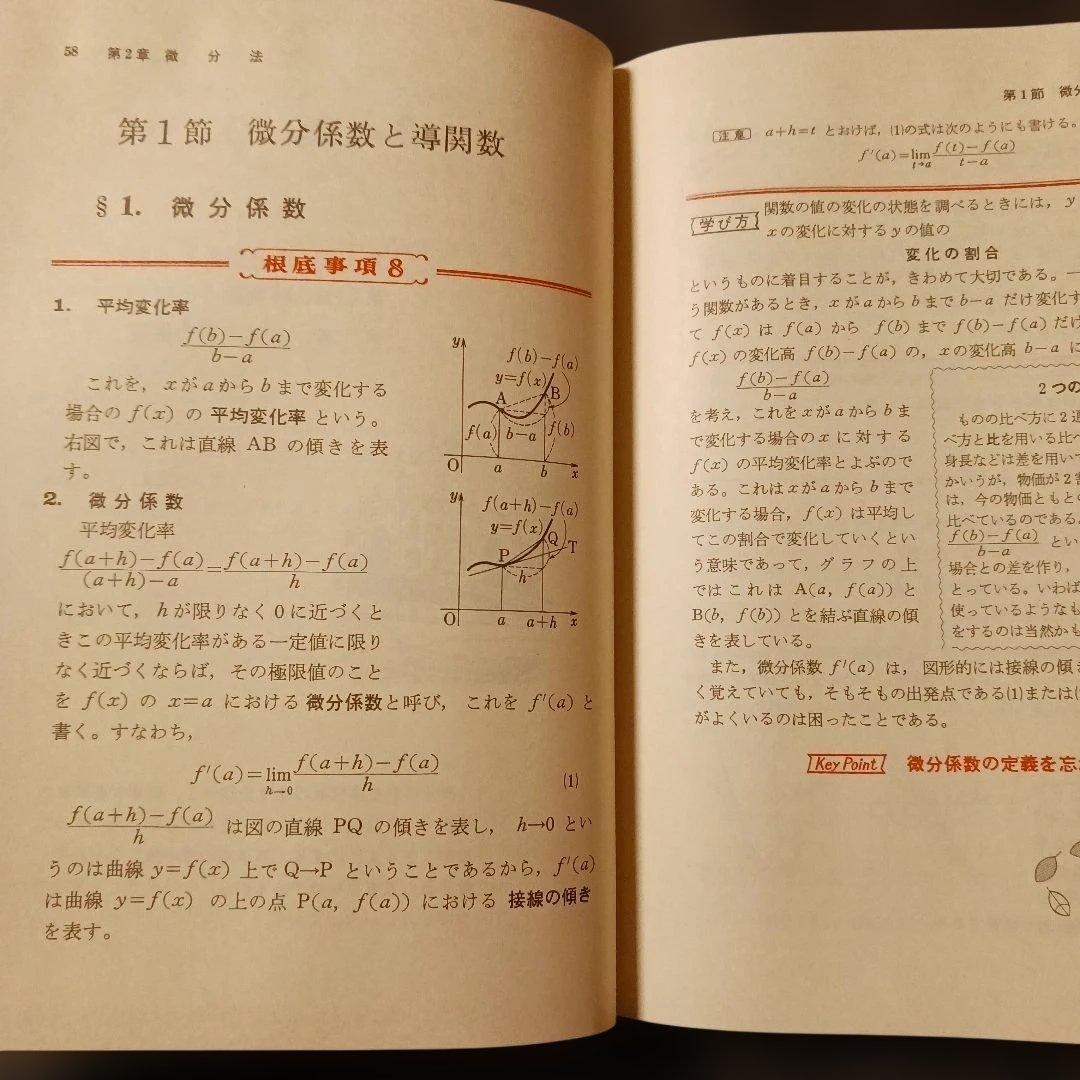 58 第2章 微 分 法
第1節 微分係数と導関数
§1. 微分係数
根底事項8
1. 平均変化率
f(b)−f(a)
b−a
これを, xがaからbまで変化する
場合の f(x) の 平均変化率 という。
右図で, これは直線 AB の傾きを表
す。
y
f(b)−f(a)
y=f(x)
A
B
f(a)
b−a
f(b)
O
a
b
x
2. 微分係数
平均変化率
f(a+h)−f(a) = f(a+h)−f(a)
(a+h)−a h
において, hが限りなく0に近づくと
きこの平均変化率がある一定値に限り
なく近づくならば, その極限値のこと
y
f(a+h)−f(a)
y=f(x)
Q
T
P
h
O
a
a+h
x
を f(x) の x=a における 微分係数と呼び, これを f′(a) と
書く。すなわち,
f′(a)=lim f(a+h)−f(a)
h→0 h (1)
f(a+h)−f(a)
h は図の直線 PQ の傾きを表し, h→0 とい
うのは曲線 y=f(x) 上で Q→P ということであるから, f′(a)
は曲線 y=f(x) の上の点 P(a, f(a)) における 接線の傾き
を表す。
第1節 微分
注意 a+h=t とおけば, (1)の式は次のようにも書ける。
f′(a)=lim f(t)−f(a)
t→a t−a
学び方 関数の値の変化の状態を調べるときには, y
xの変化に対するyの値の
変化の割合
というものに着目することが, きわめて大切である。一
う関数があるとき, xがaからbまで b−a だけ変化す
て f(x) は f(a) から f(b) まで f(b)−f(a) だけ
f(x) の変化高 f(b)−f(a) の, xの変化高 b−a に
f(b)−f(a)
b−a
を考え, これをxがaからbま
で変化する場合のxに対する
f(x) の平均変化率とよぶので
ある。これはxがaからbまで
変化する場合, f(x) は平均し
てこの割合で変化していくとい
う意味であって, グラフの上
ではこれは A(a, f(a)) と
B(b, f(b)) とを結ぶ直線の傾
きを表している。
2つの
ものの比べ方に2通
べ方と比を用いる比べ
身長などは差を用いて
かいうが, 物価が2割
は, 今の物価ともとの
比べているのである。
f(b)−f(a)
b−a とい
場合との差を作り,
とっている。いわば
使っているようなも
をするのは当然かも
また, 微分係数 f′(a) は, 図形的には接線の傾き
く覚えていても, そもそもの出発点である(1)または(
がよくいるのは困ったことである。
Key Point 微分係数の定義を忘